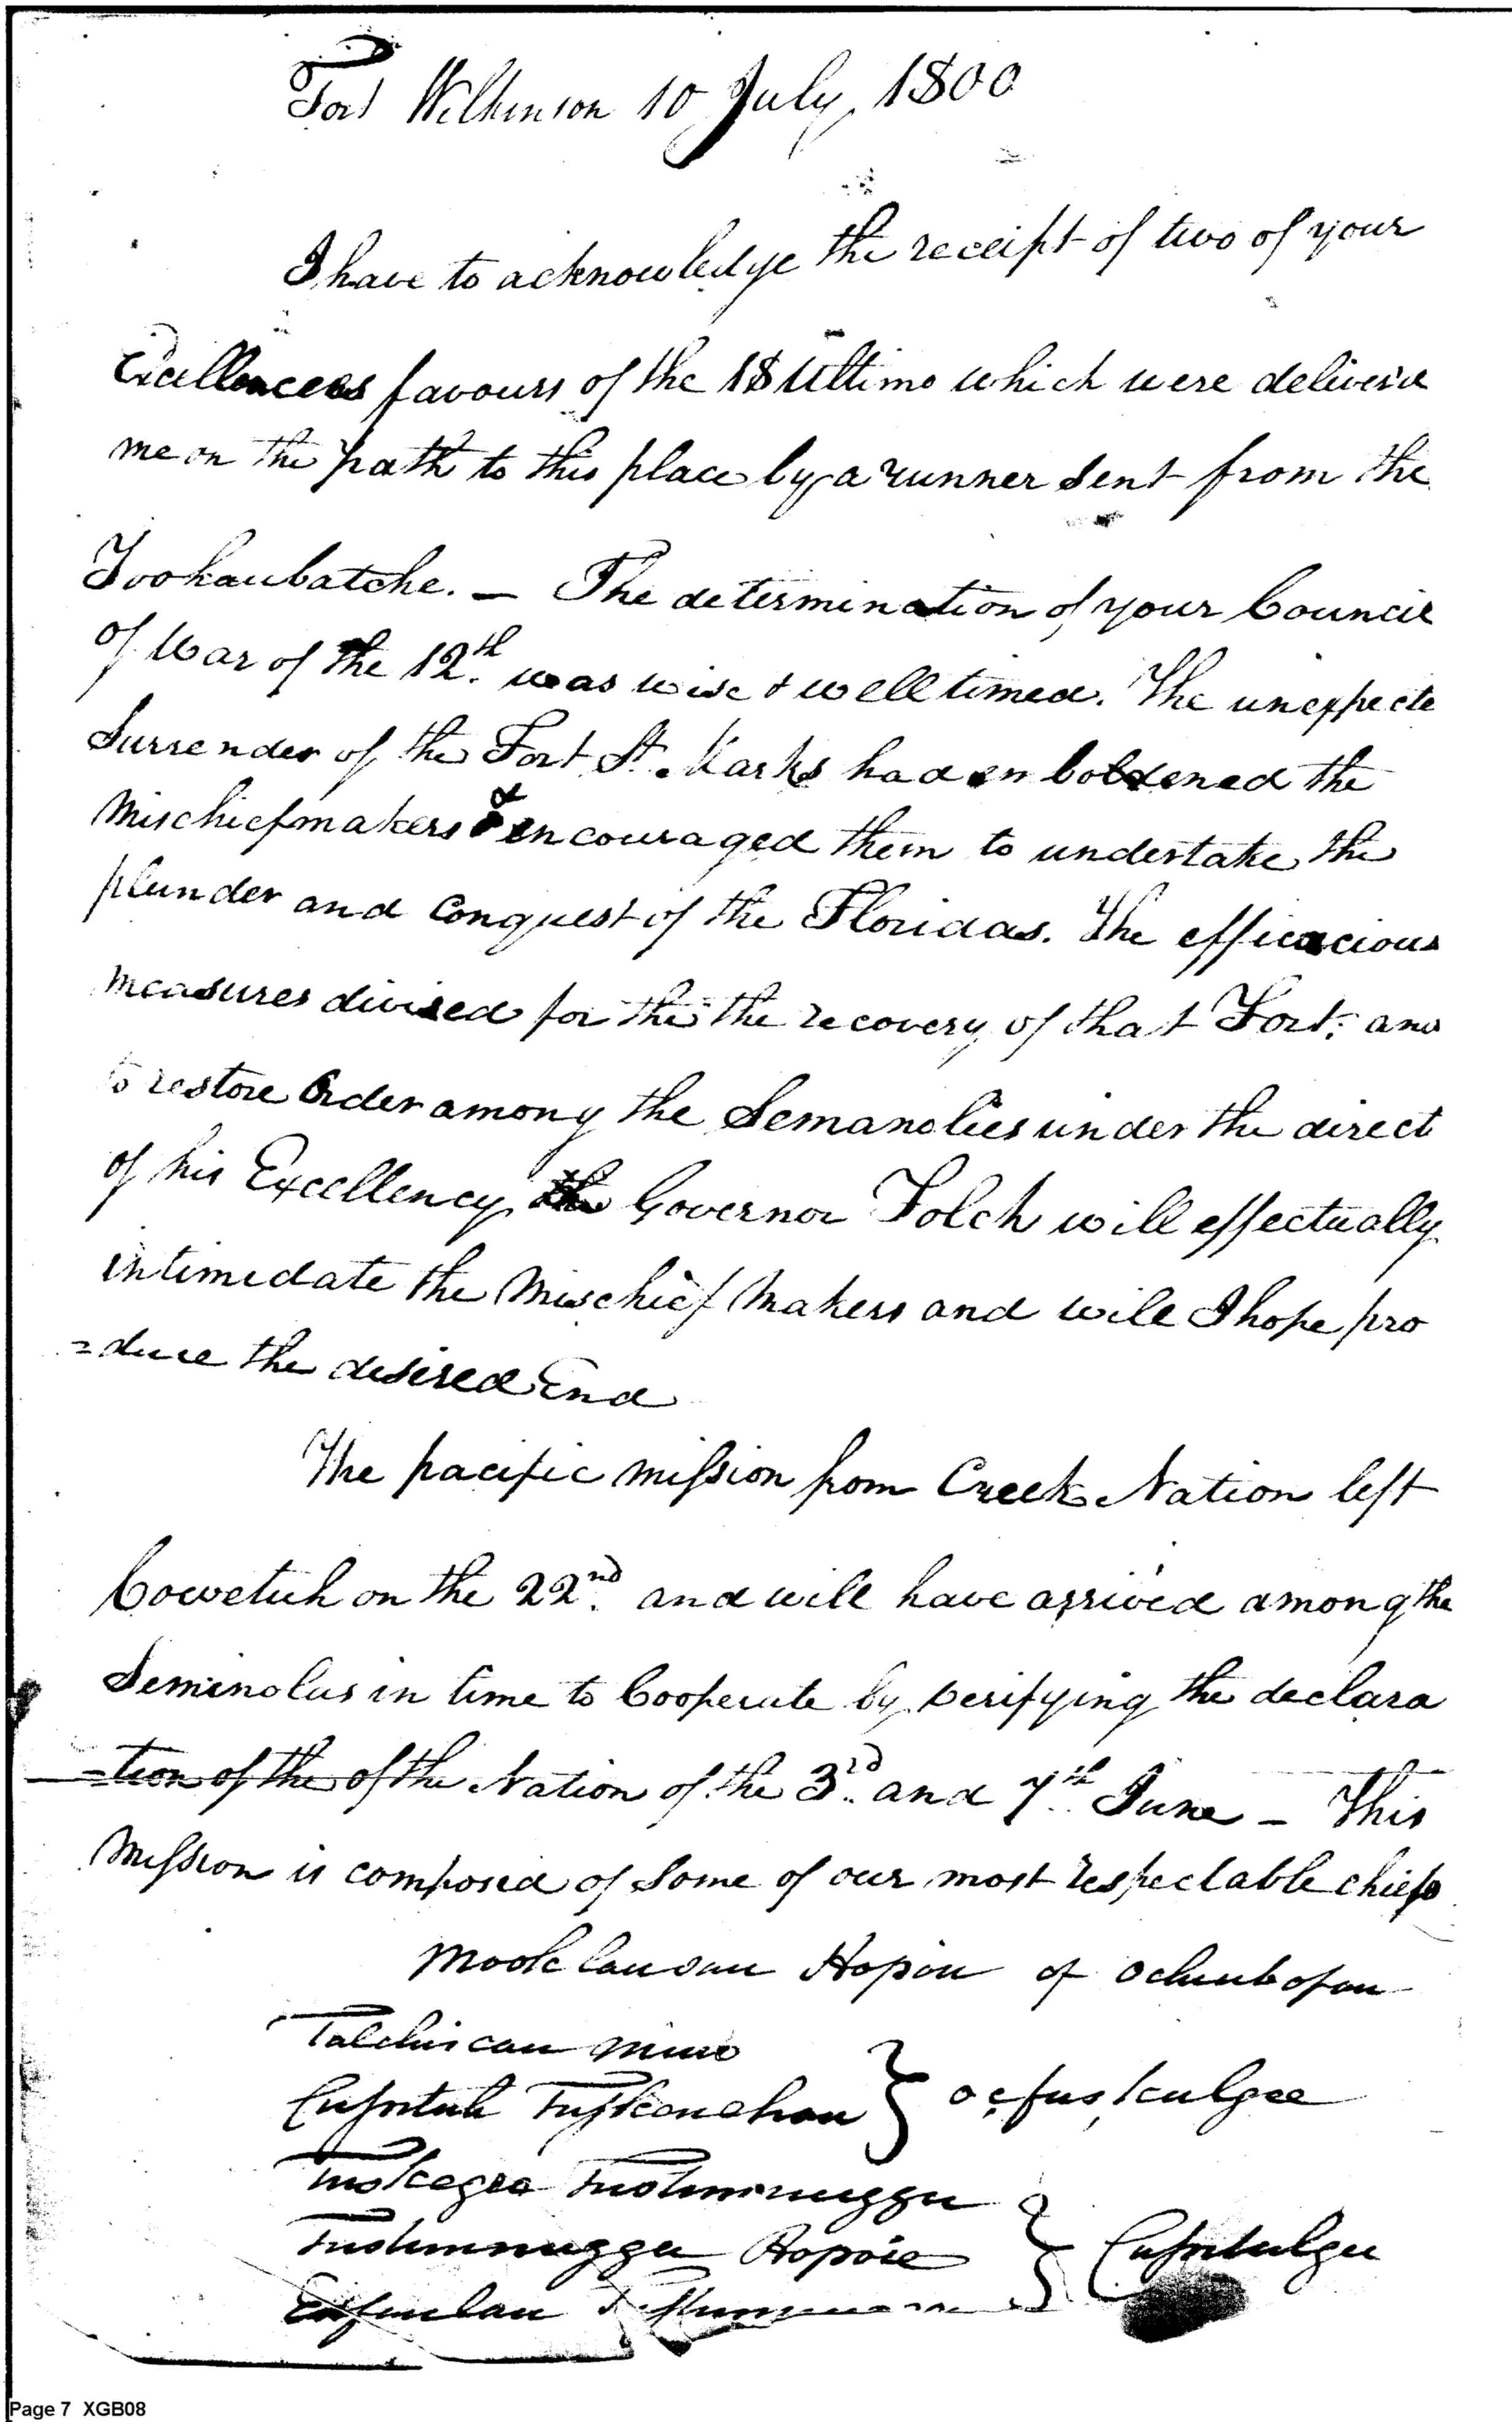 Fort Wilkinson 10 July, 1800
I have to acknowledge the receipt of two of your
Excellencees favours of the 18 Ultimo which were deliver'd
me on the path to this place by a runner sent from the
Tookaubatche. — The determination of your Council
of War of the 12th. was wise & well timed. The unexpecte
Surrender of the Fort St. Marks had emboldened the
Mischiefmakers & encouraged them to undertake the
plunder and Conquest of the Floridas. The efficacious
measures divised for the the recovery of that Fort; and
to restore Order among the Semanolies under the direct
of his Excellency the Governor Folch will effectually
intimedate the Mischief Makers and will I hope pro
=duce the desired End
The pacific mission from Creek Nation left
Cowetuh on the 22nd. and will have arrived among the
Seminolus in time to Cooperate by verifying the declara
=tion of the of the Nation of the 3rd. and 7th. June — This
Mission is composed of some of our most respectable chiefs
Hopoie of
Talchiscau Mico
ocfuskulgee
Tuskegee Tustunnuggee
Tustunnuggee Hopoie
Page 7 XGB08